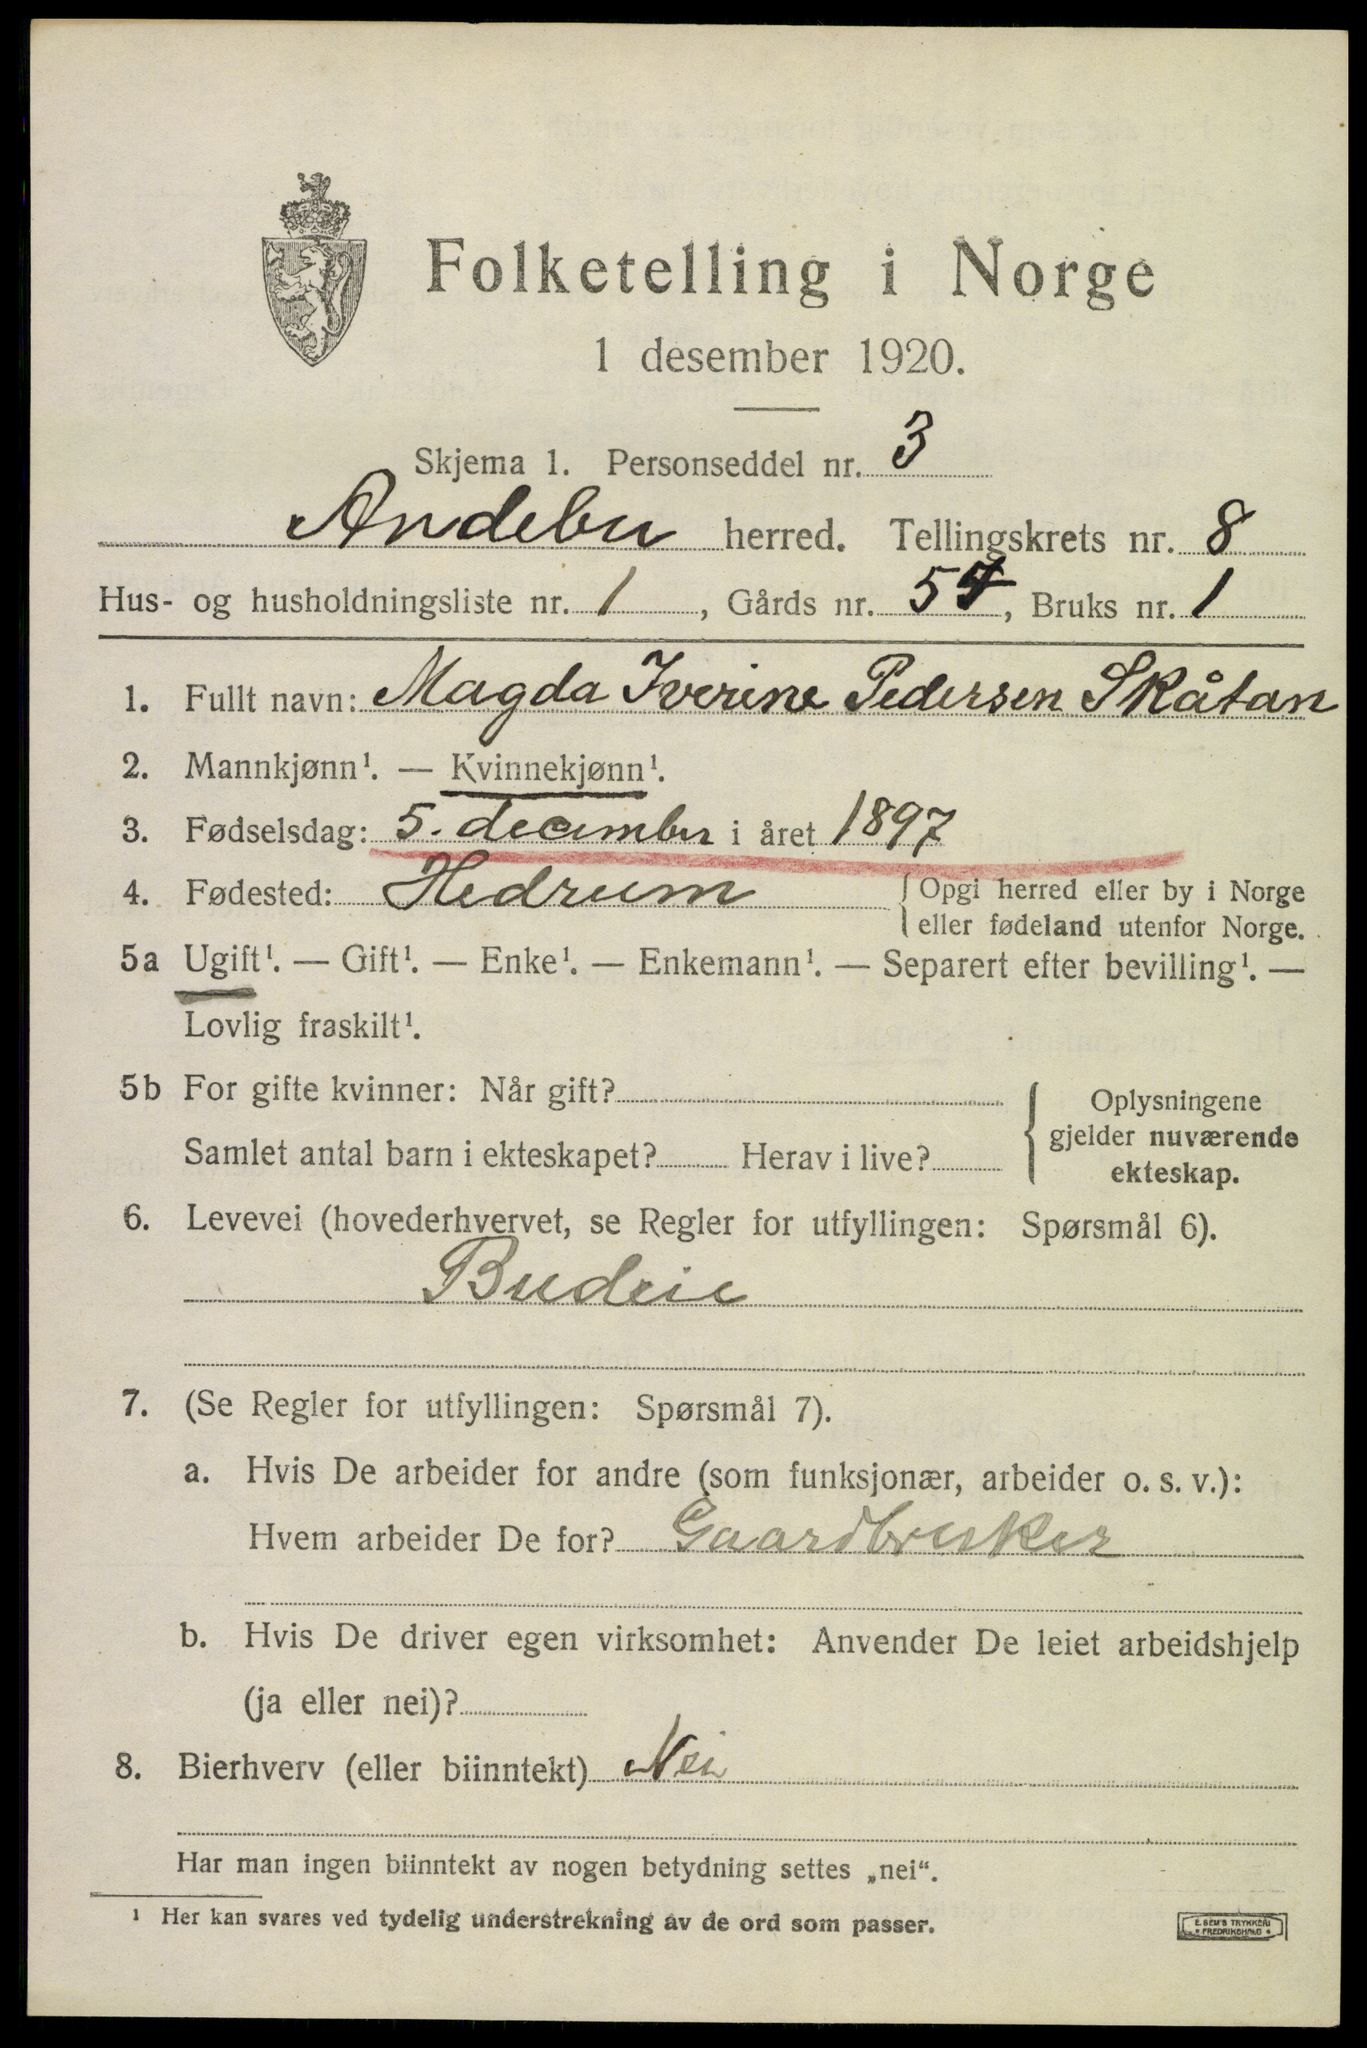 Folketelling i Norge
1 desember 1920.
Skjema 1. Personseddel nr. 3
Andebu herred. Tellingskrets nr. 8
Hus- og husholdningsliste nr. 1, Gårds nr. 54, Bruks nr. 1
1. Fullt navn: Magda Iverine Pedersen Skåtan
2. Mannkjønn¹. — Kvinnekjønn¹.
3. Fødselsdag: 5. december i året 1897
4. Fødested: Hedrum {Opgi herred eller by i Norge
eller fødeland utenfor Norge.
5a Ugift¹. — Gift¹. — Enke¹. — Enkemann¹. — Separert efter bevilling¹. —
Lovlig fraskilt¹.
5b For gifte kvinner: Når gift?
Samlet antal barn i ekteskapet? Herav i live?
Oplysningene
gjelder nuværende
ekteskap.
6. Levevei (hovederhvervet, se Regler for utfyllingen: Spørsmål 6).
Budeie
7. (Se Regler for utfyllingen: Spørsmål 7).
a. Hvis De arbeider for andre (som funksjonær, arbeider o. s. v.):
Hvem arbeider De for? Gaardbruker
b. Hvis De driver egen virksomhet: Anvender De leiet arbeidshjelp
(ja eller nei)?
8. Bierhverv (eller biinntekt) Nei
Har man ingen biinntekt av nogen betydning settes „nei“.
¹ Her kan svares ved tydelig understrekning av de ord som passer.
E. SEM'S TRYKKERI
* FREDRIKSHALD *